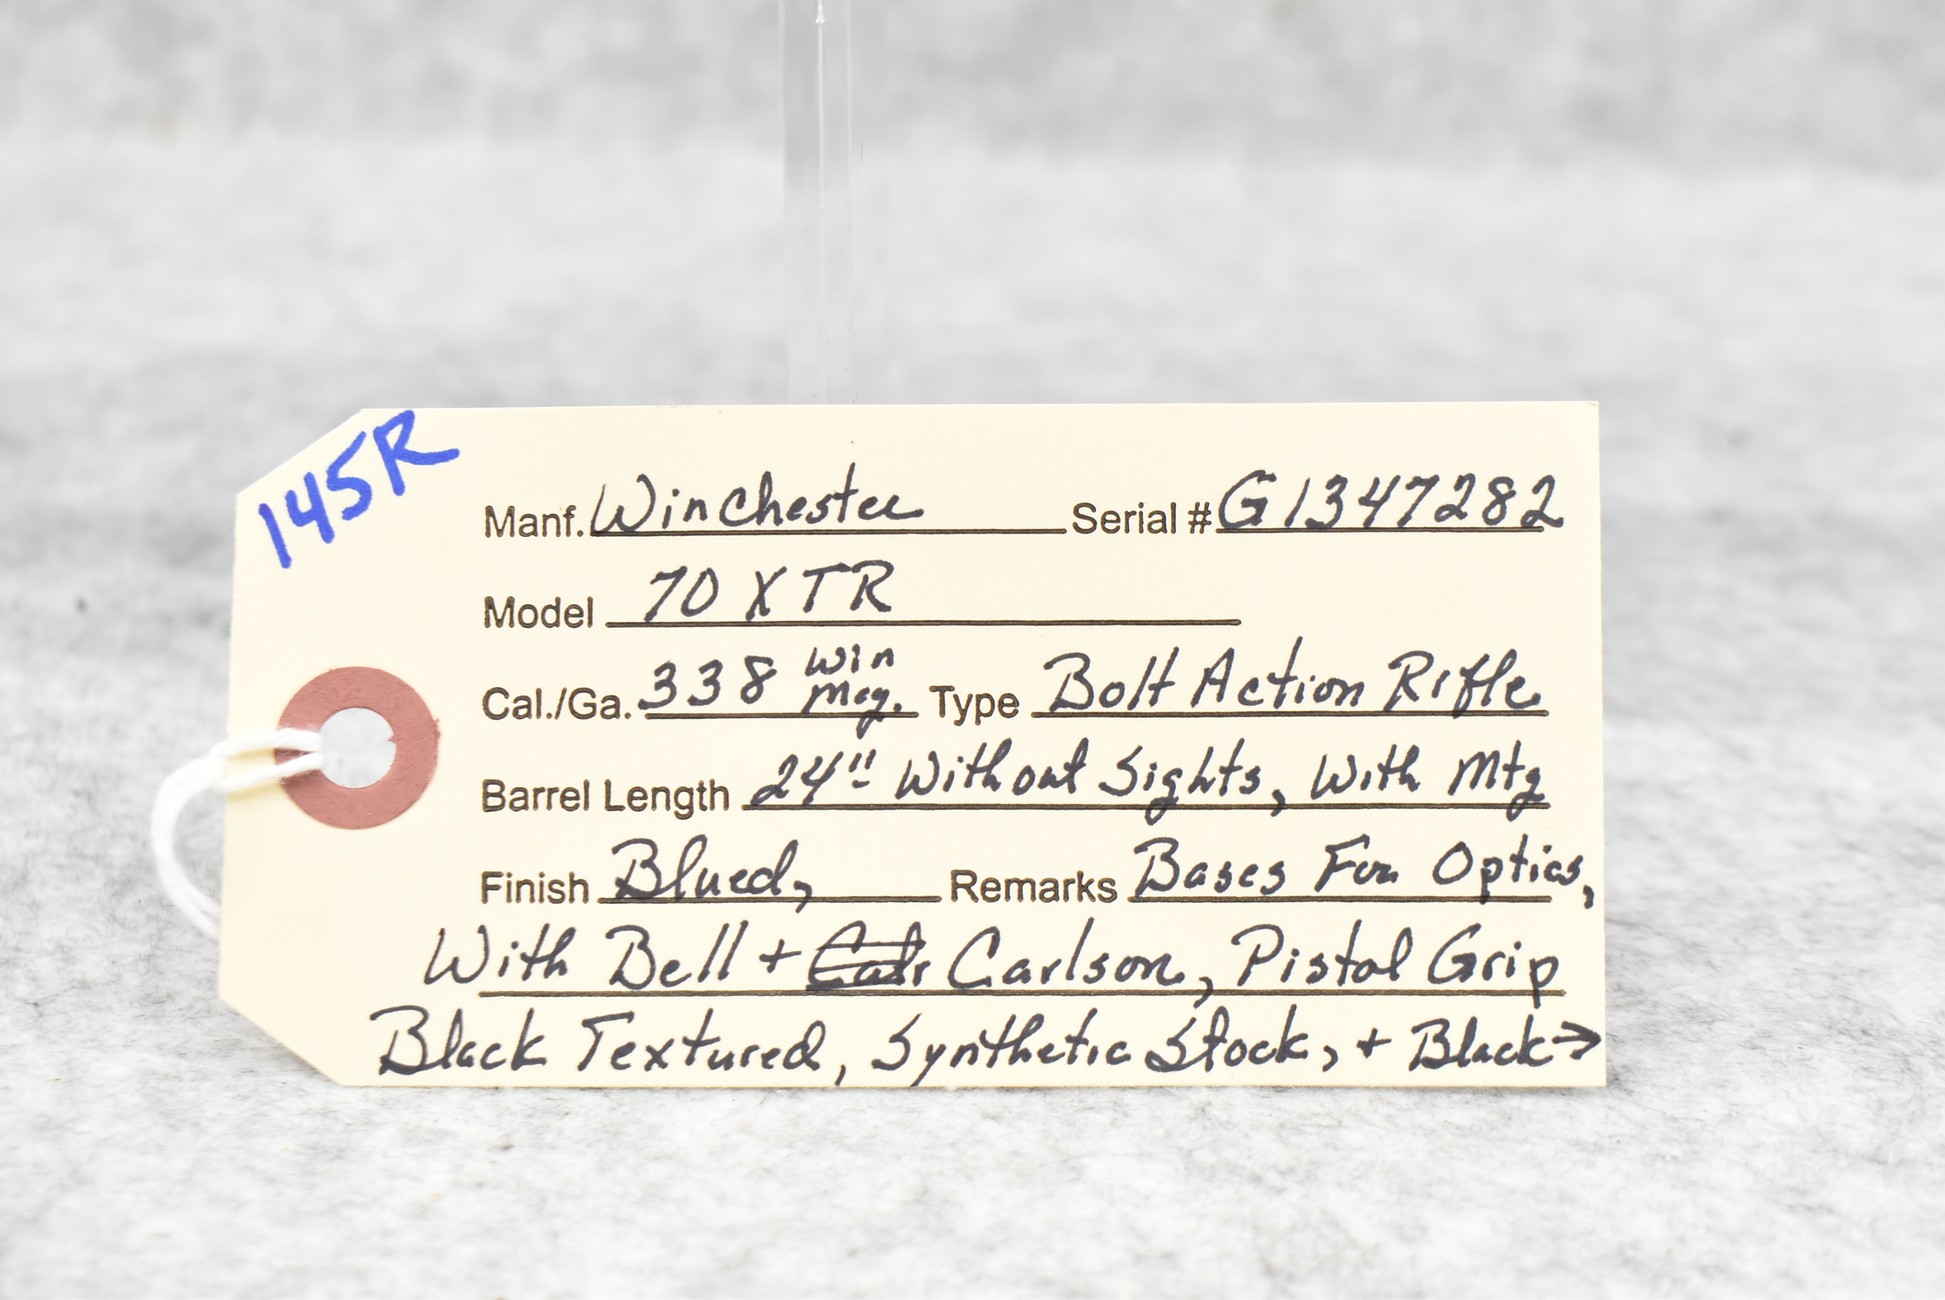 145R
Manf. Winchester Serial # G1347282
Model 70 XTR
Cal./Ga. 338 Win Mag. Type Bolt Action Rifle
Barrel Length 24" Without Sights, With Mtg
Finish Blued, Remarks Bases For Optics,
With Bell + Carlson, Pistol Grip
Black Textured, Synthetic Stock, + Black →